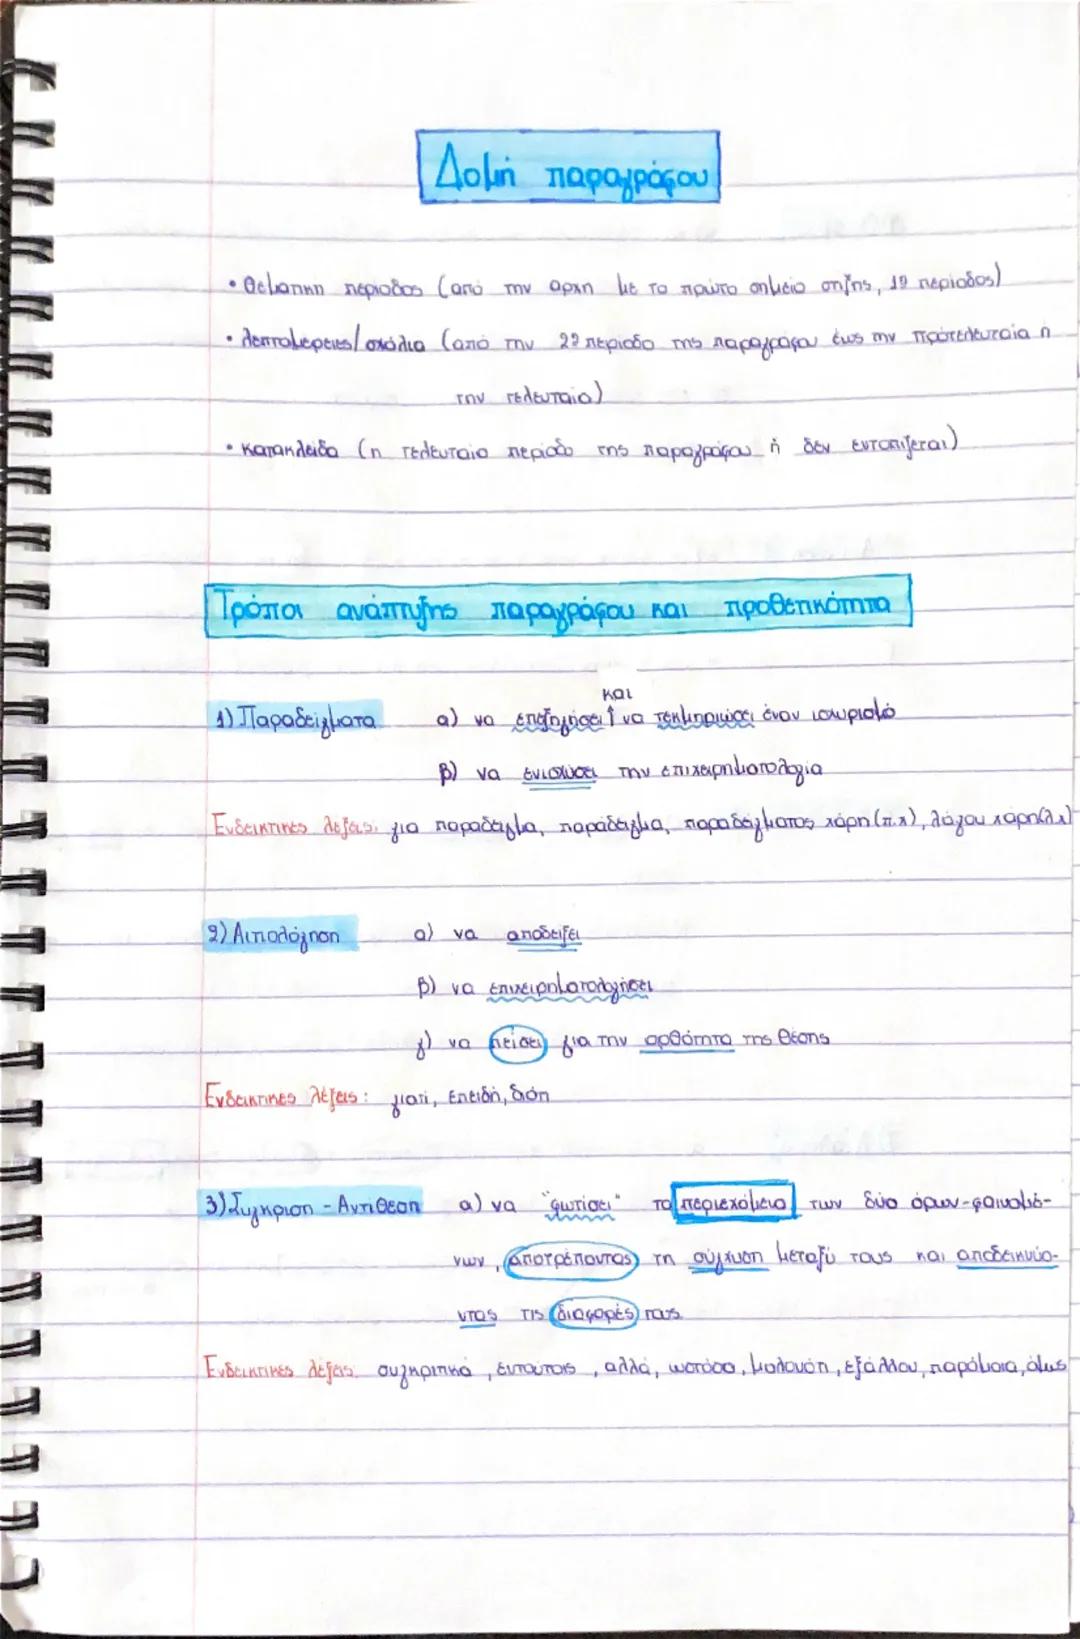 Δομή παραγράφου
• Θεματική περίοδος (από την αρχή με το πρώτο σημείο στίξης, 1η περίοδος)
• λεπτομέρειες/σχόλια (από την 2η περίοδο της παραγράφου έως την προτελευταία ή
την τελευταία)
• κατακλείδα (η τελευταία περίοδο της παραγράφου ή δεν εντοπίζεται)
Τρόποι ανάπτυξης παραγράφου και προθετικότητα
και
1) Παραδείγματα α) να επεξηγήσει ↑ να τεκμηριώσει έναν ισχυρισμό
β) να ενισχύσει την επιχειρηματολογία
Ενδεικτικές λέξεις: για παράδειγμα, παράδειγμα, παραδείγματος χάρη (π.χ), λόγου χάρη (λ.χ)
2) Αιτιολόγηση α) να αποδείξει
β) να επιχειρηματολογήσει
γ) να πείσει για την ορθότητα της θέσης
Ενδεικτικές λέξεις: γιατί, επειδή, διότι
3) Σύγκριση - Αντίθεση α) να "φωτίσει" το περιεχόμενο των δύο όρων-φαινομέ-
νων, αποτρέποντας τη σύγχυση μεταξύ τους και αποδεικνύο-
ντας τις διαφορές τους
Ενδεικτικές λέξεις: συγκριτικά, εντούτοις, αλλά, ωστόσο, μολονότι, εξάλλου, παρόμοια, όμως